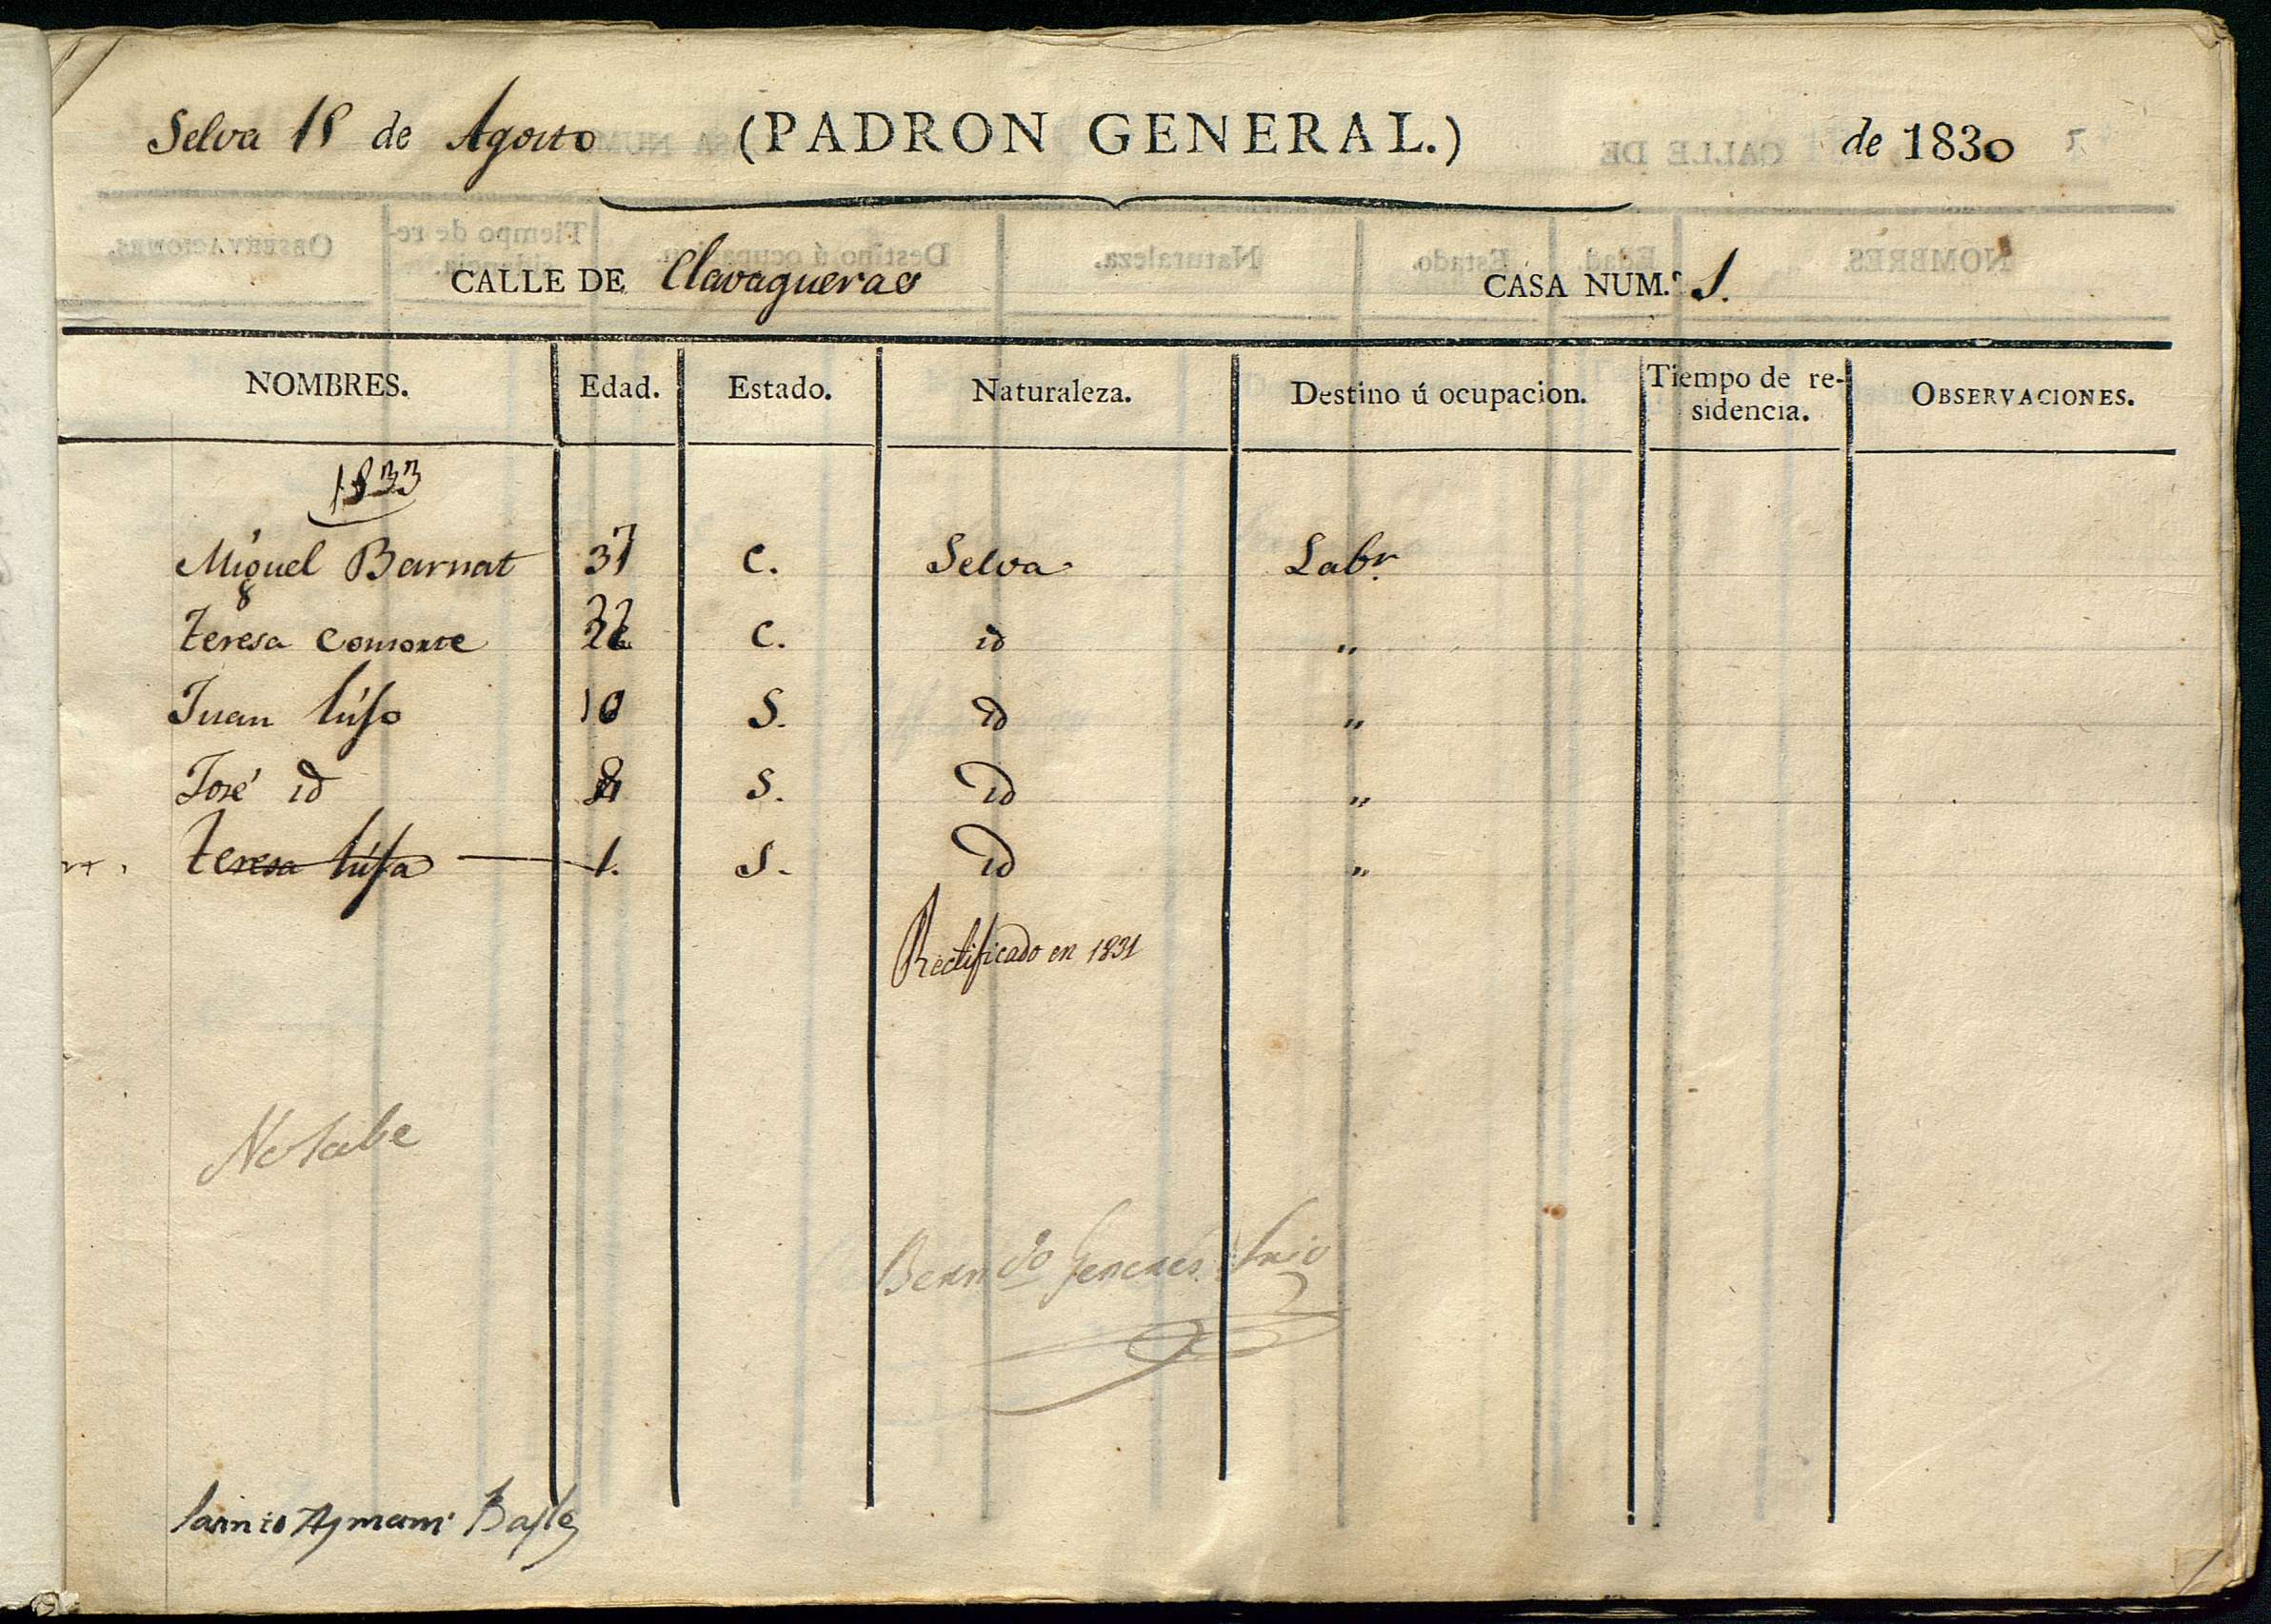 Selva 18 de Agosto (PADRON GENERAL.) de 1830
CALLE DE Clavagueras CASA NUM.º 1.
NOMBRES. Edad. Estado. Naturaleza. Destino ú ocupacion. Tiempo de re-sidencia. OBSERVACIONES.
1833
Miguel Barnat 37 C. Selva Labr.
Teresa Consorte C. id "
Juan hijo 10 S. id "
José id 8 S. id "
Teresa hija 1. S. id "
Rectificado en 1831
No sabe
Berndo Generes Srio
Aymami Bayle